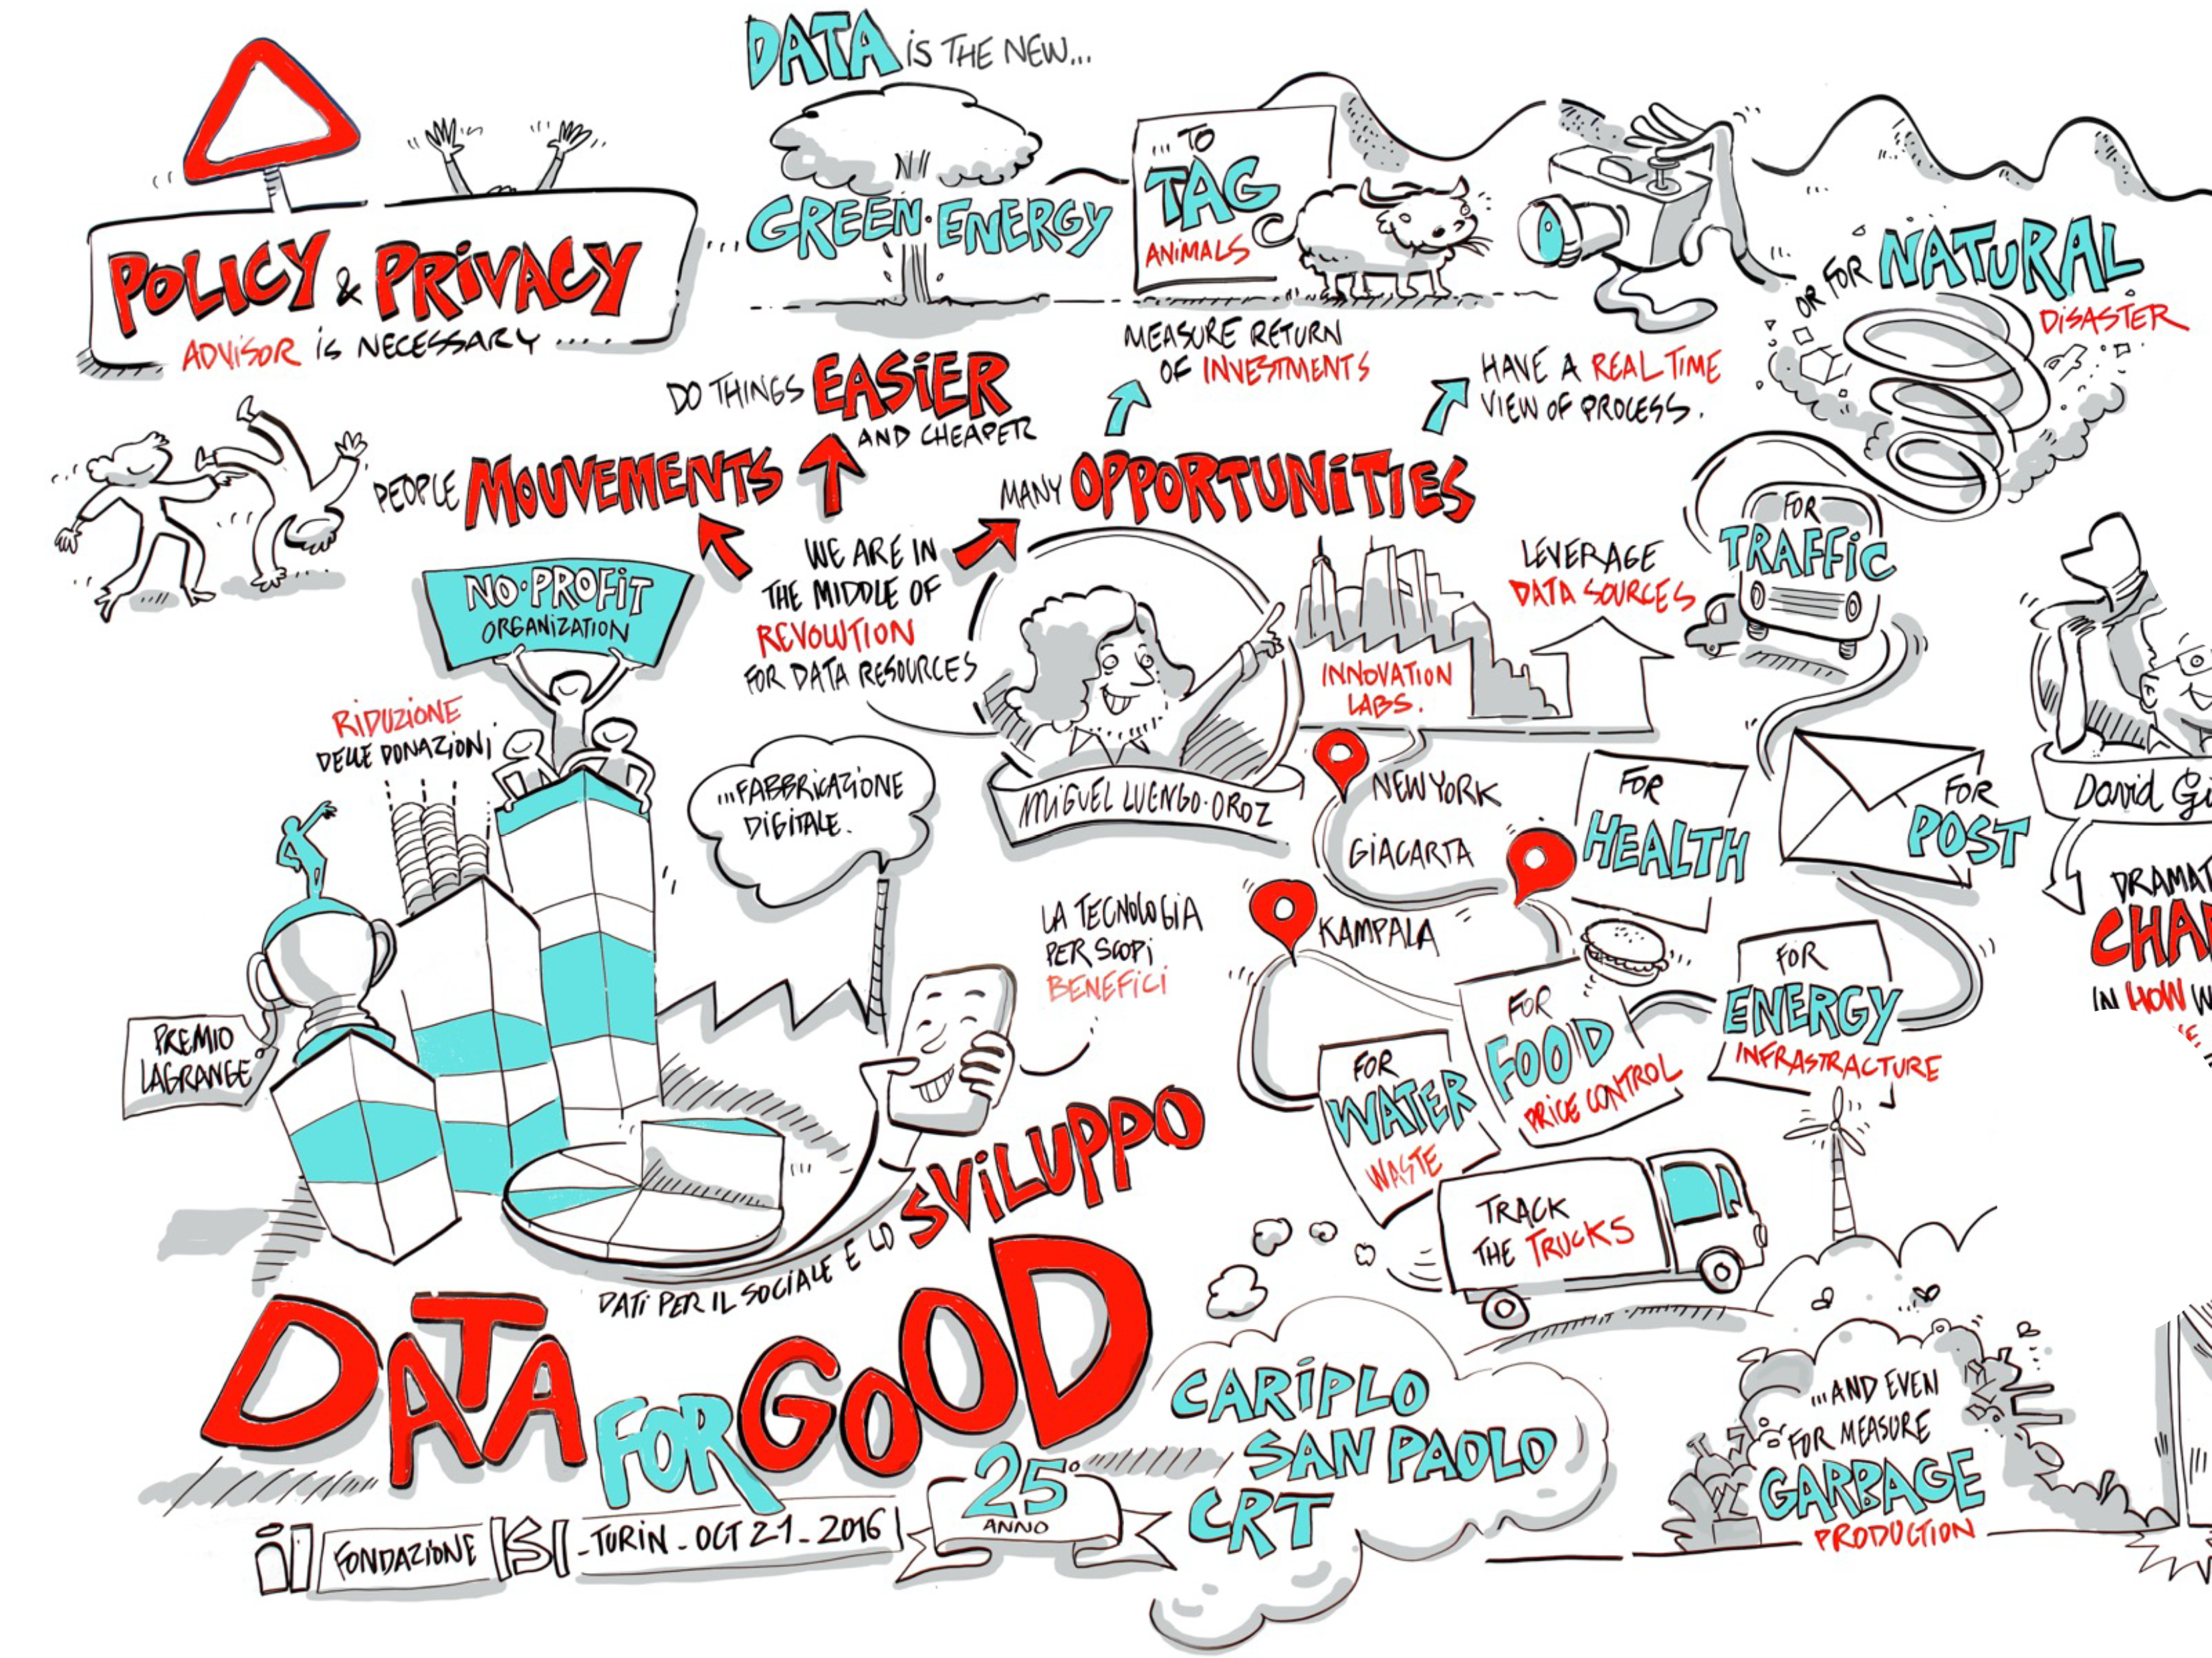 DATA iS THE NEW...
...GREEN·ENERGY
POLiCY & PRiVACY
ADViSOR is NECESSARY .....
TO
TAG
ANiMALS
OR FOR NATURAL
DiSASTER
MEASURE RETURN
OF INVESTMENTS
HAVE A REAL TIME
VIEW OF PROCESS.
DO THINGS EASiER
AND CHEAPER
PEOPLE MOUVEMENTS
MANY OPPORTUNiTIES
WE ARE IN
THE MIDDLE OF
REVOLUTION
FOR DATA RESOURCES
NO·PROFiT
ORGANiZATION
RiDUZiONE
DELLE DONAZiONi
...FABBRiCAZiONE
DiGiTALE.
MiGUEL LUENGO·OROZ
INNOVATION
LABS.
LEVERAGE
DATA SOURCES
FOR
TRAFFiC
NEW YORK
GiACARTA
KAMPALA
FOR
HEALTH
FOR
POST
David Gi
DRAMAT
CHA
IN HOW W
LA TECNOLOGiA
PER SCOPi
BENEFiCi
PREMiO
LAGRANGE
FOR
WATER
WASTE
FOR
FOOD
PRiCE CONTROL
FOR
ENERGY
INFRASTRACTURE
TRACK
THE TRUCKS
DATi PER IL SOCiALE E LO SViLUPPO
DATA FOR GOOD
FONDAZiONE ISI - TURiN - OCT 21 - 2016
25°
ANNO
CARiPLO
SAN PAOLO
CRT
...AND EVEN
FOR MEASURE
GARBAGE
PRODUCTiON